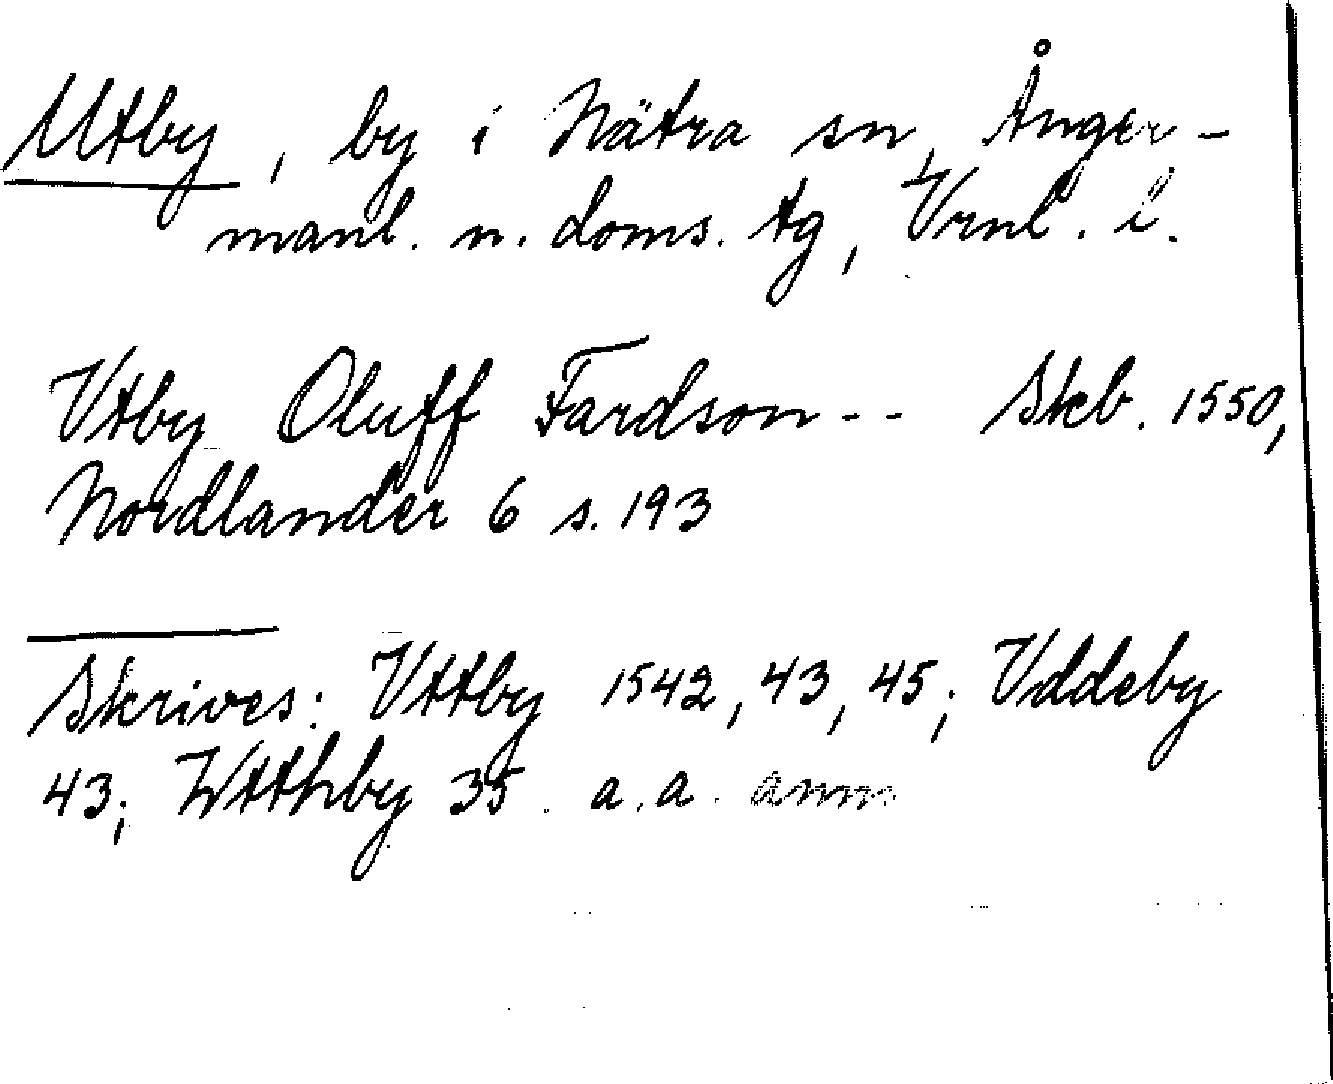 Utby, by i Nätra sn, Ånger-
manl. n. doms. tg, Vrnl. l.
Vtby Oluff Fardson -- Skb. 1550,
Nordlander 6 s. 193
Skrives: Vttby 1542, 43, 45; Vddeby
43; Wtthby 35. a.a. anm